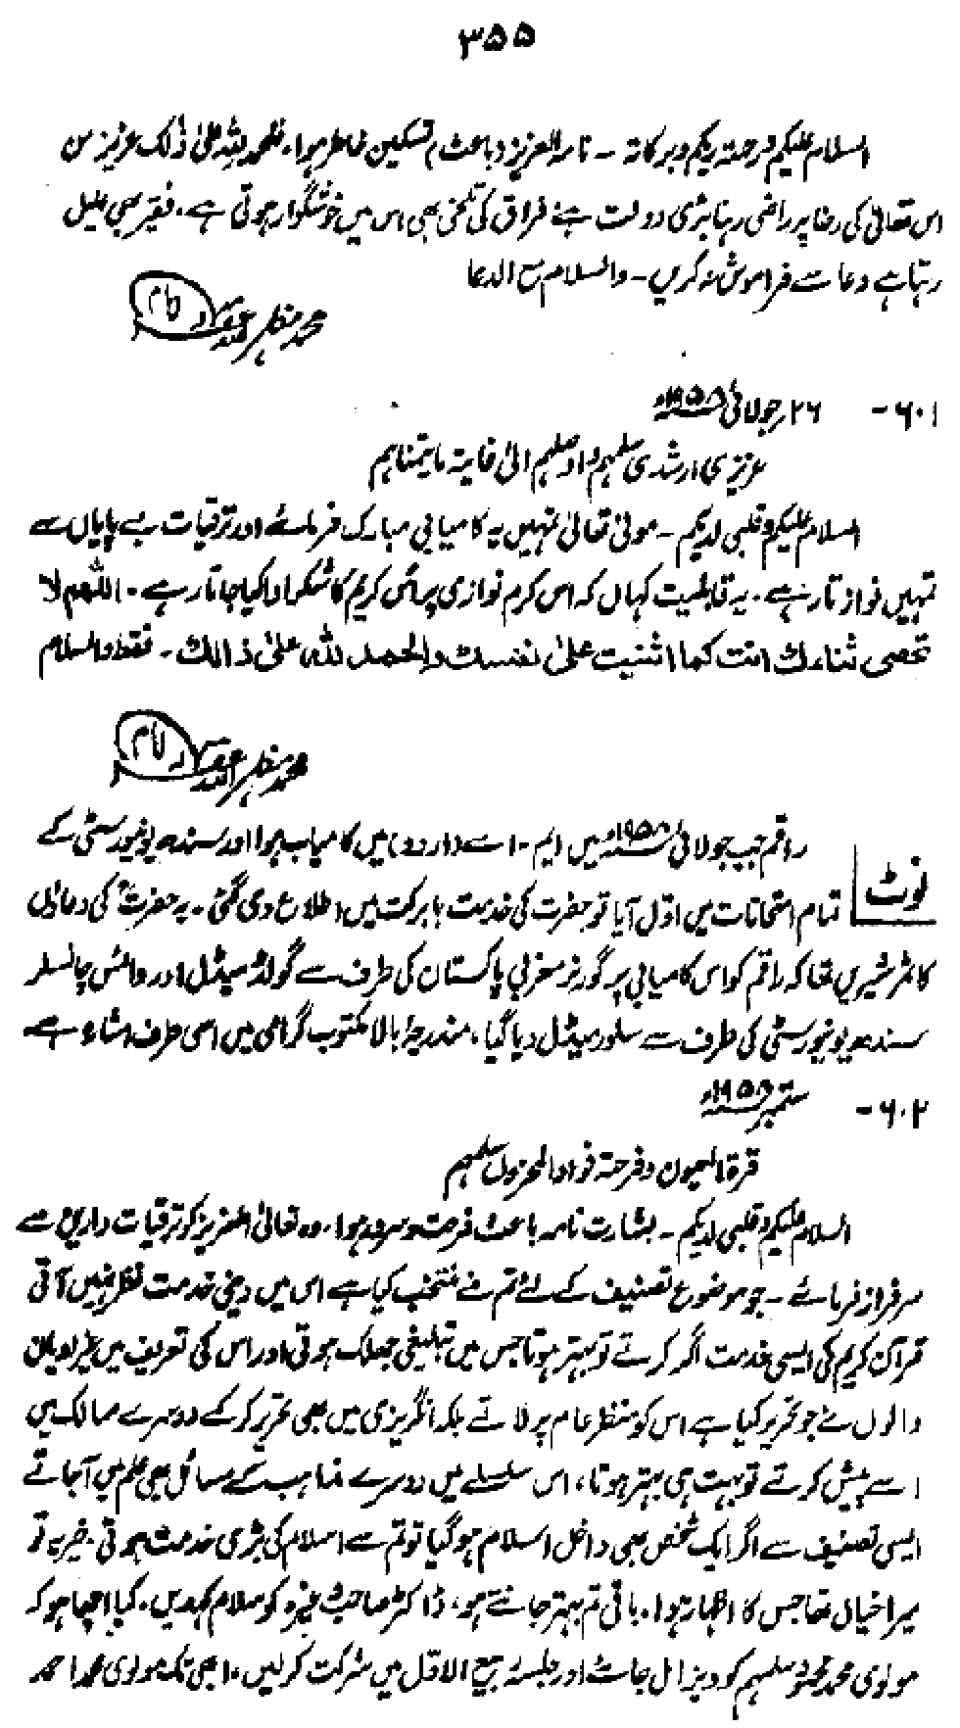 ۳۵۵
السلام علیکم ورحمۃ ربکم وبرکاتہ ۔ نامۂ العزیز باعث تسکین خاطر ہوا، فلحمد للہ علیٰ ذٰلک عزیز من
اس تعالیٰ کی رضا پر راضی رہنا بڑی دولت ہے فراق کی تلخی بھی اس میں خوشگوار ہوتی ہے، فقیر بھی علیل
رہتا ہے دعا سے فراموش نہ کریں ۔ والسلام مع الدعا
محمد مظہر اللہ غفرلہ
امام
۶۰۱ - ۲۶ جولائی ۱۹۵۸ء
عزیزی ارشدی سلمہم واوصلہم الیٰ غایۃ مایتمناہم
السلام علیکم وقلبی لدیکم ۔ مولیٰ تعالیٰ تمہیں یہ کامیابی مبارک فرمائے اور ترقیات بے پایاں سے
تمہیں نوازتا رہے ۔ یہ قابلیت کہاں کہ اس کرم نوازی پر اس کریم کا شکر ادا کیا جاتا رہے ۔ اللّٰھم لا
نحصی ثناءک انت کما اثنیت علیٰ نفسک والحمد للّٰہ علیٰ ذالک ۔ فقط والسلام
محمد مظہر اللہ غفرلہ
امام
نوٹ
راقم جب جولائی ۱۹۵۸ء میں ایم ۔ اے (اردو) میں کامیاب ہوا اور سندھ یونیورسٹی کے
تمام امتحانات میں اوّل آیا تو حضرت کی خدمت بابرکت میں اطلاع دی گئی ۔ یہ حضرتؒ کی دعاؤں
کا ثمر شیریں تھا کہ راقم کو اس کامیابی پر گورنر مغربی پاکستان کی طرف سے گولڈ میڈل اور وائس چانسلر
سندھ یونیورسٹی کی طرف سے سلور میڈل دیا گیا، مندرجۂ بالا مکتوب گرامی میں اسی طرف اشارہ ہے
۶۰۲ - ستمبر ۱۹۵۸ء
قرۃ العیون وفرحۃ فواد المحزون سلمہم
السلام علیکم وقلبی لدیکم ۔ بشارت نامہ باعث فرحت وسرور ہوا ۔ وہ تعالیٰ العزیز کو ترقیات دارین سے
سرفراز فرمائے ۔ جو موضوع تصنیف کے لئے تم نے منتخب کیا ہے اس میں دینی خدمت نظر نہیں آتی
قرآن کریم کی ایسی خدمت اگر کرتے تو بہتر ہوتا جس میں تبلیغی جھلک ہوتی اور اس کی تعریف میں غیر ادیان
والوں نے جو تحریر کیا ہے اس کو منظر عام پر لاتے بلکہ انگریزی میں بھی تحریر کرکے دوسرے ممالک میں
اسے پیش کرتے تو بہت ہی بہتر ہوتا، اس سلسلے میں دوسرے مذاہب کے مسائل بھی علم میں آجاتے
ایسی تصنیف سے اگر ایک شخص بھی داخل اسلام ہوگیا تو تم سے اسلام کی بڑی خدمت ہوتی ۔ خیر یہ تو
میرا خیال تھا جس کا اظہار ہوا، باقی تم بہتر جانتے ہو، ڈاکٹر صاحب وغیرہ کو سلام کہدیں، کیا اچھا ہو کہ
مولوی محمد محمود سلمہم کو ویزا مل جائے اور جلسۂ ربیع الاوّل میں شرکت کرلیں، ابھی تک مولوی محمد احمد